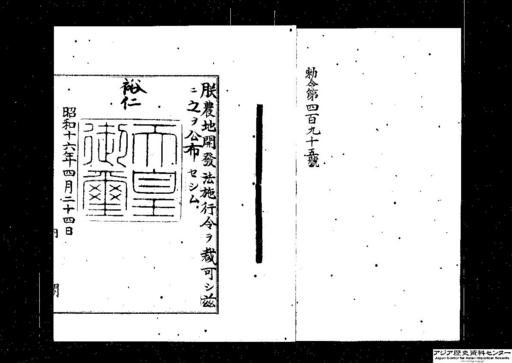 勅令第四百九十五號
朕農地開發法施行令ヲ裁可シ茲
ニ之ヲ公布セシム
裕仁
天皇御璽
昭和十六年四月二十四日
アジア歴史資料センター
Japan Center for Asian Historical Records